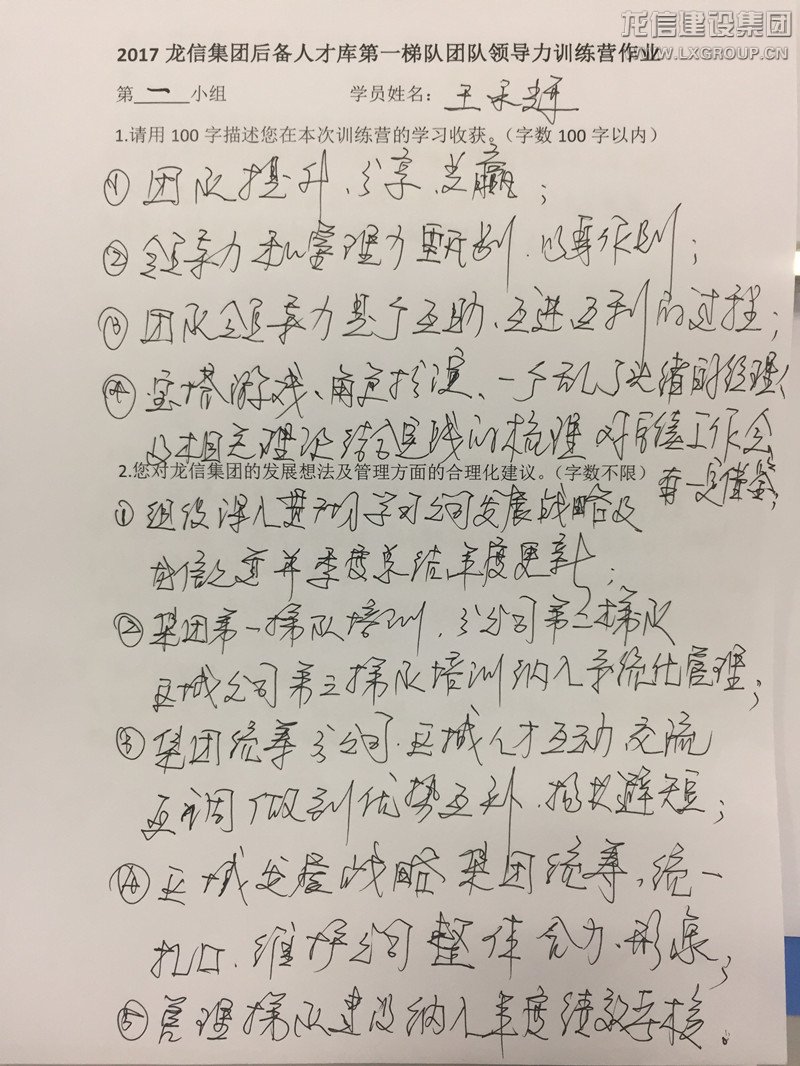 龙信建设集团
WWW.LXGROUP.CN
2017 龙信集团后备人才库第一梯队团队领导力训练营作业
第 一 小组 学员姓名： 王
1.请用 100 字描述您在本次训练营的学习收获。（字数 100 字以内）
① 团队提升、分享、共赢；
② 领导力和管理力甄别、以身作则；
③ 团队领导力是个互助、互进、互利的过程；
④ 宝塔游戏、角色扮演、一个乱了头绪的经理人
及相关理论结合实践的梳理 对后续工作会
有一定借鉴；
2.您对龙信集团的发展想法及管理方面的合理化建议。（字数不限）
① 组织深入贯彻学习公司发展战略及
龙信之道并季度总结年度更新；
② 集团第一梯队培训、分公司第二梯队
区域公司第三梯队培训纳入系统化管理；
③ 集团统筹分公司、区域人才互动交流
互调 做到优势互补、扬长避短；
④ 区域发展战略集团统筹、统一
扎口、维护公司整体合力、形象；
⑤ 管理梯队建设纳入年度绩效考核。